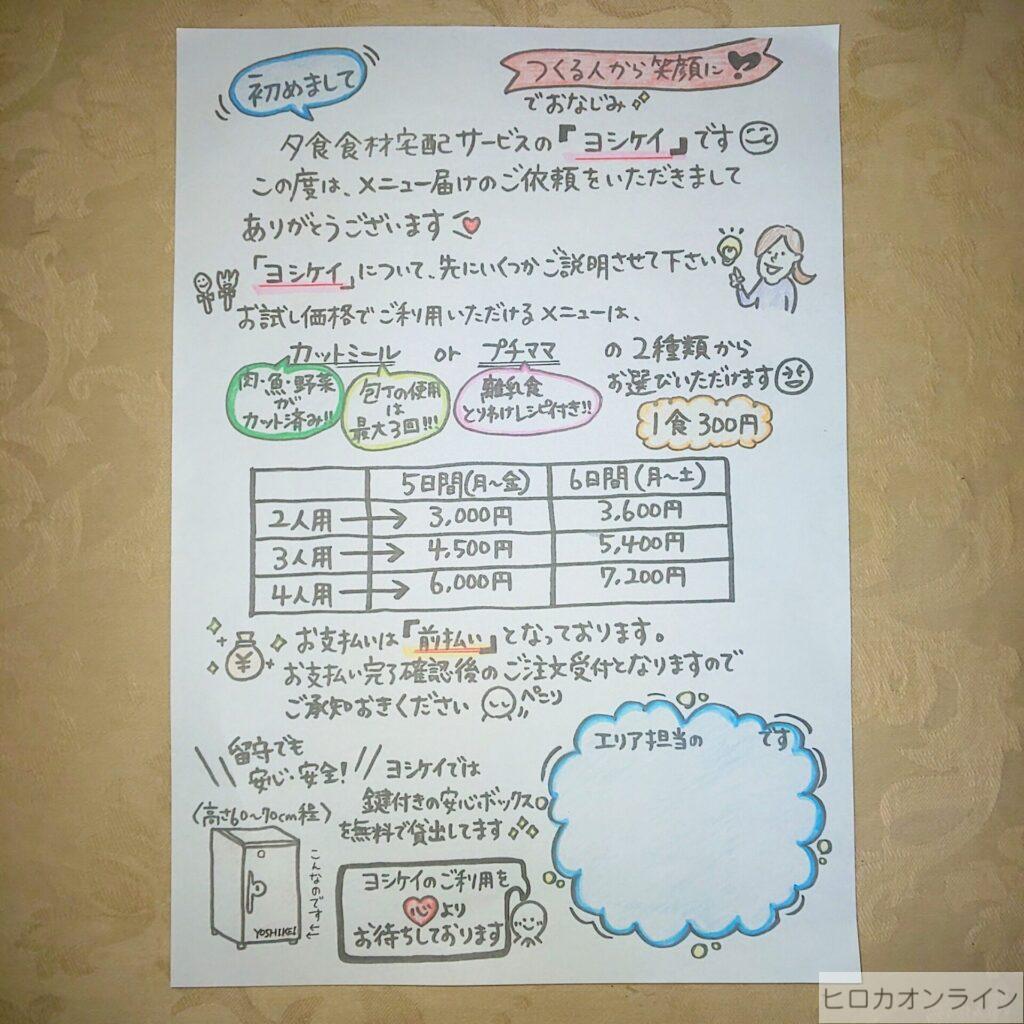 初めまして
つくる人から笑顔に
でおなじみ
夕食食材宅配サービスの『ヨシケイ』です
この度は、メニュー届けのご依頼をいただきまして
ありがとうございます
「ヨシケイ」について、先にいくつかご説明させて下さい
お試し価格でご利用いただけるメニューは、
カットミール or プチママ の2種類から
お選びいただけます
肉・魚・野菜
が
カット済み!!
包丁の使用
は
最大3回!!!
離乳食
とりわけレシピ付き!!
1食300円
5日間(月~金) 6日間(月~土)
2人用 → 3,000円 3,600円
3人用 → 4,500円 5,400円
4人用 → 6,000円 7,200円
¥
お支払いは『前払い』となっております。
お支払い完了確認後のご注文受付となりますので
ご承知おきください ペコリ
エリア担当の です
留守でも
安心・安全!
ヨシケイでは
鍵付きの安心ボックス
を無料で貸出してます
(高さ60~70cm程)
こんなのです
YOSHIKEI
ヨシケイのご利用を
心より
お待ちしております
ヒロカオンライン